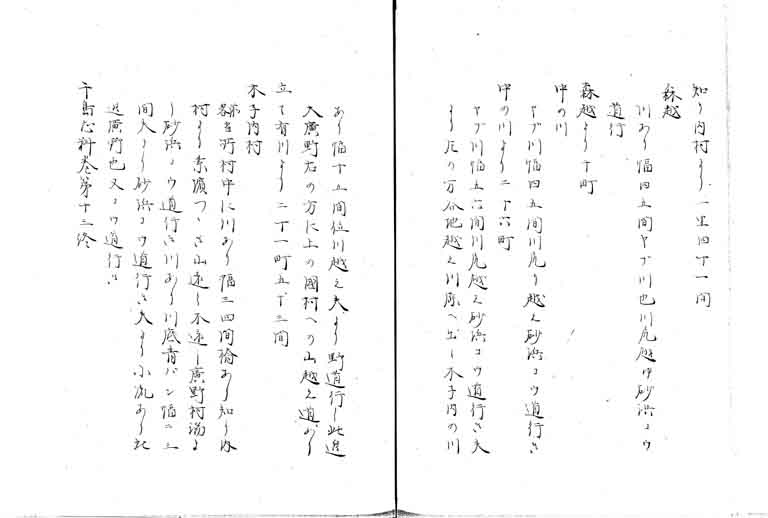 知り内村より一里四丁一間
森越
川あり幅四五間ヤブ川也川尻越ゆ砂浜コウ
道行
森越より十町
中の川
ヤブ川幅四五間川尻り越え砂浜コウ道行き
中の川より二丁六町
ヤブ川幅五六間川尻越え砂浜コウ道行き夫
より左の方谷地越え川原へ出し木子内の川
あり幅十五間位川越え夫より野道行し此辺
大廣野右の方に上の國村への山越え道あり
立て有川より二丁一町五丁三間
木子内村
当所村中に川あり幅三四間橋あり知り内
村より素濱つゝき山遠し不遠し廣野村端よ
り砂浜コウ道行き川あり川底青バン幅二三
間夫より砂浜コウ道行き夫より小流あり
近廣野也又コウ道行き
千島志料巻第十三終